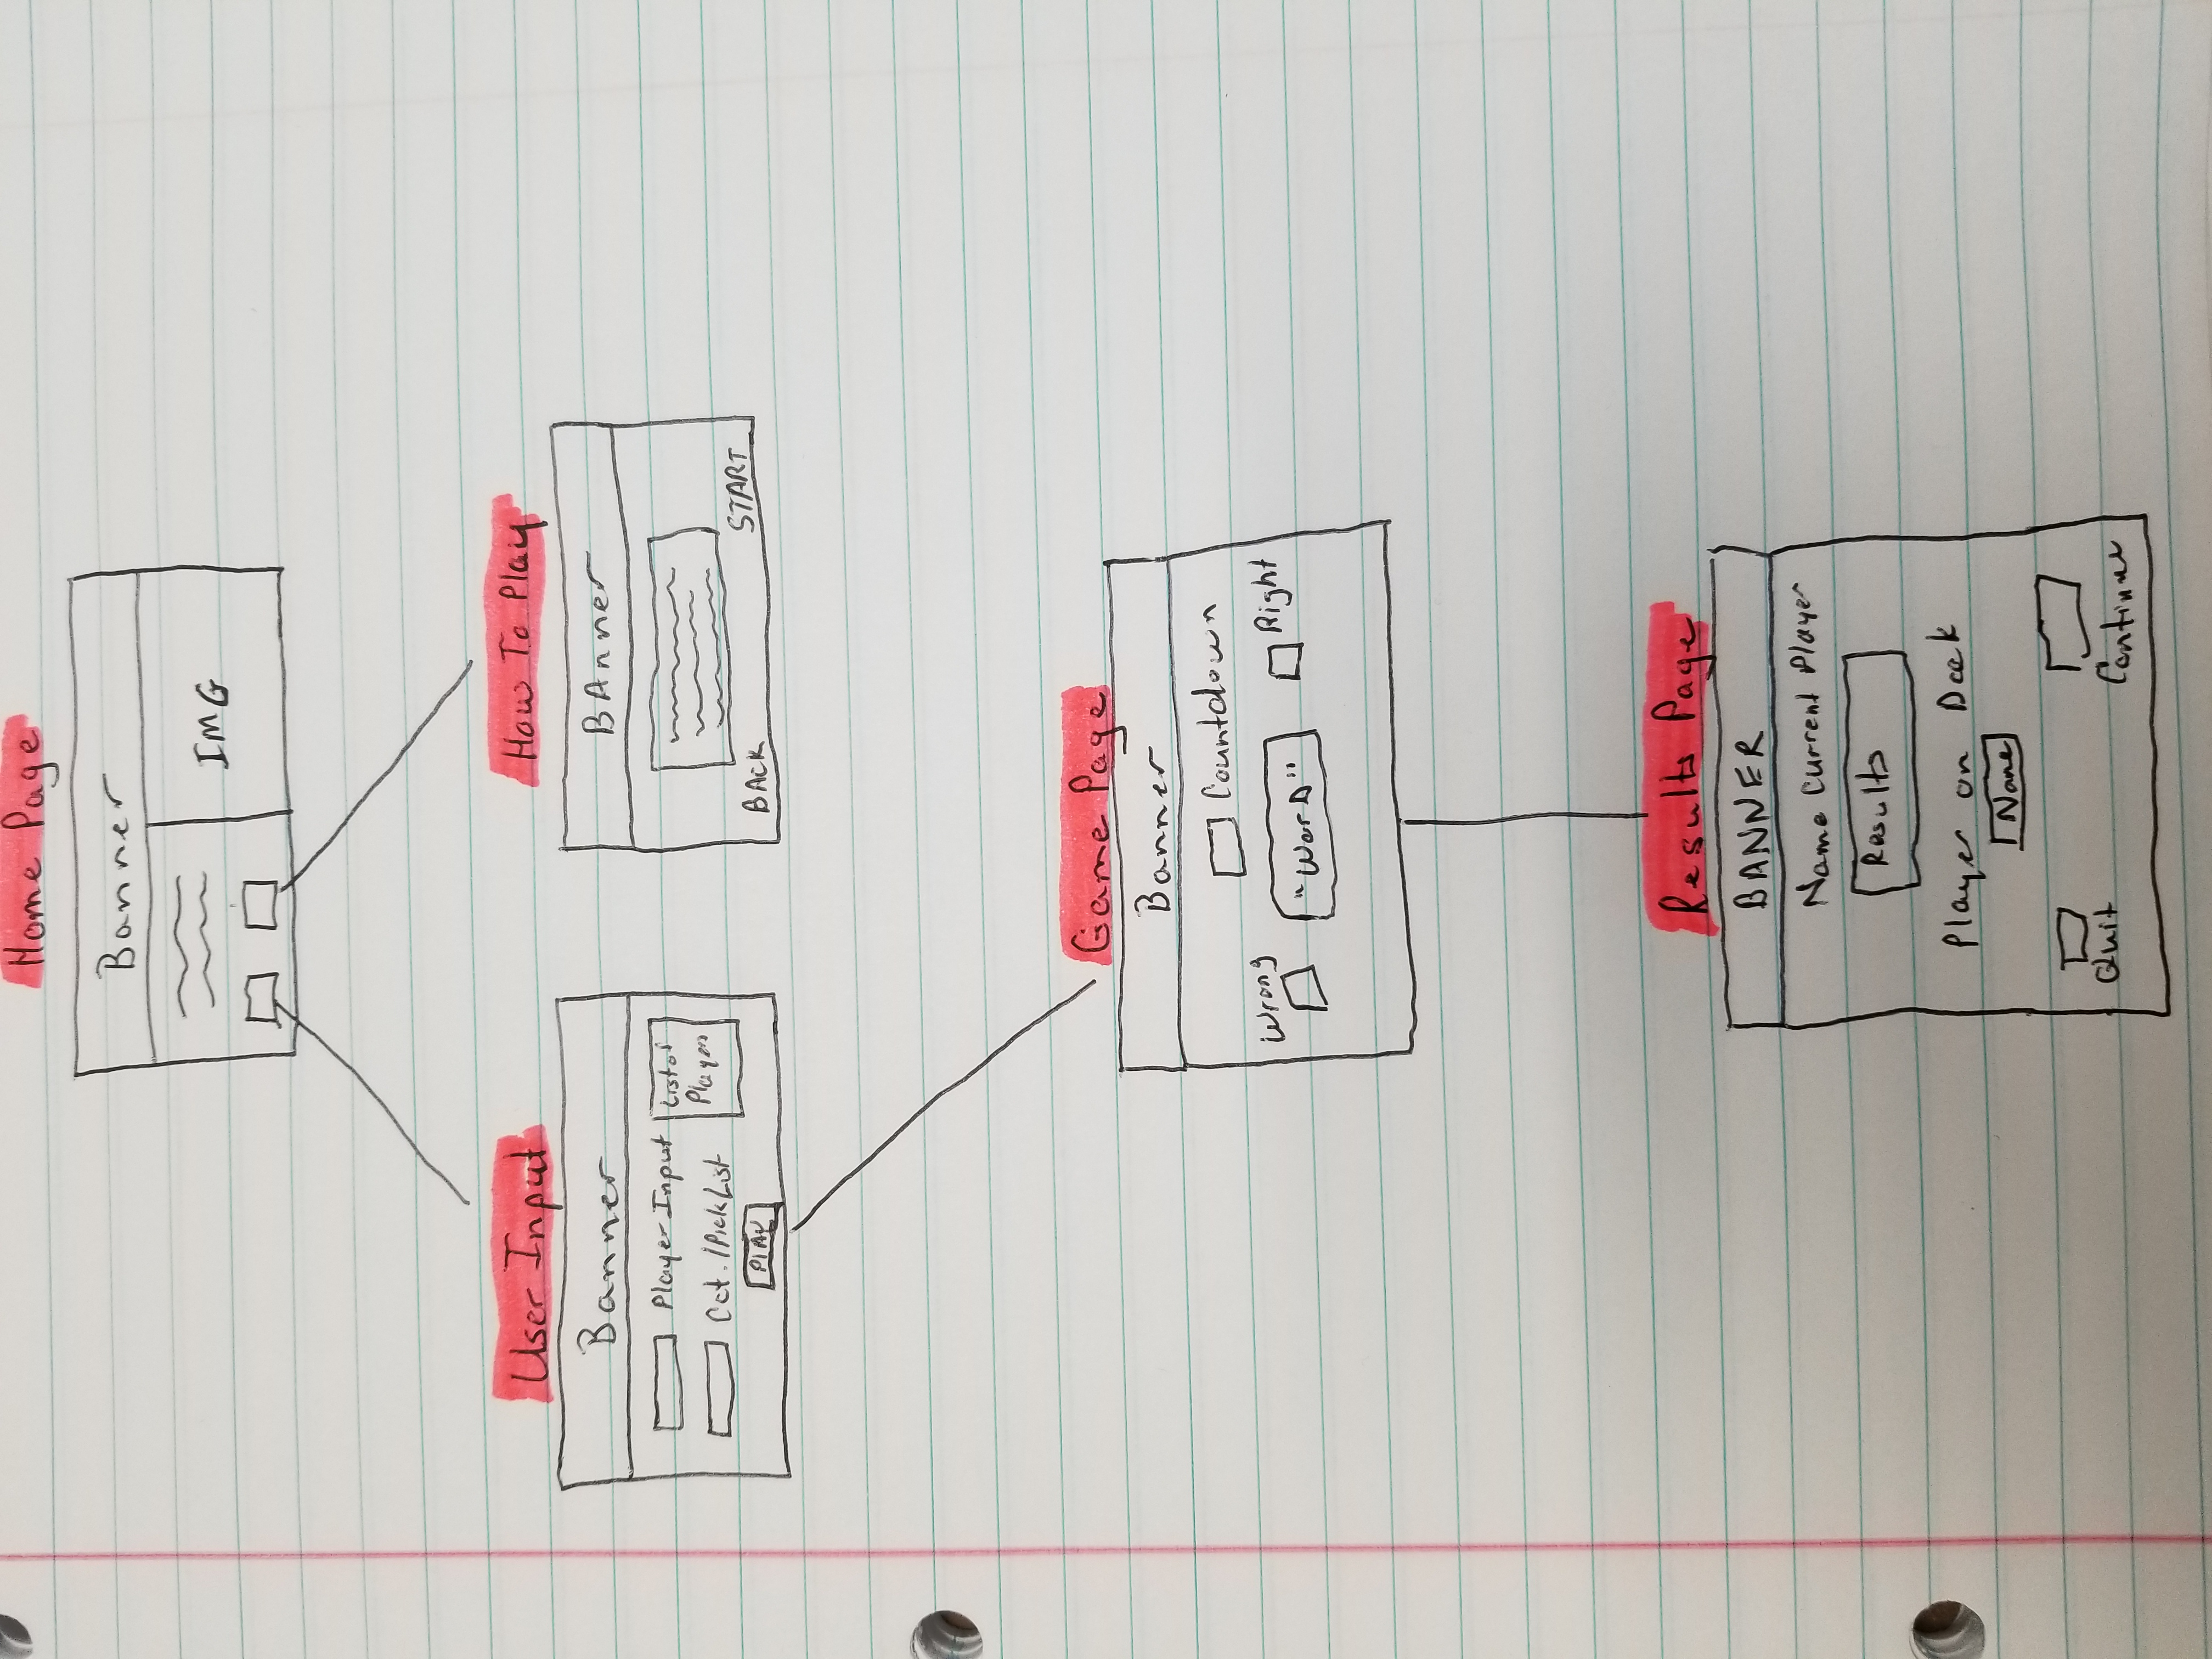 Home Page
Banner
IMG
User Input
Banner
Player Input
List of
Players
Cat. / Pick List
PLAY
How To Play
BAnner
BAck
START
Game Page
Banner
Countdown
Wrong
"WorD"
Right
Results Page
BANNER
Name Current Player
Results
Player on Deck
Name
Quit
Continue